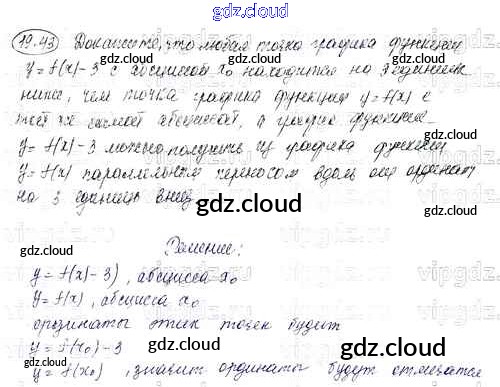 gdz.cloud
19.43 Докажите, что любая точка графика функции
gdz.cloud gdz.cloud
y = f(x) - 3 с абсциссой x₀ находится на 3 единицы
ниже, чем точка графика функции y = f(x) с
той же самой абсциссой, а график функции
y = f(x) - 3 можно получить из графика функции
y = f(x) параллельным переносом вдоль оси ординат
на 3 единицы вниз.
gdz.cloud
gdz.cloud
Решение:
gdz.cloud
y = f(x) - 3), абсцисса x₀
y = f(x), абсцисса x₀
gdz.cloud
ординаты этих точек будут
y = f(x₀) - 3
gdz.cloud gdz.cloud
y = f(x₀), значит ординаты будут отличаться